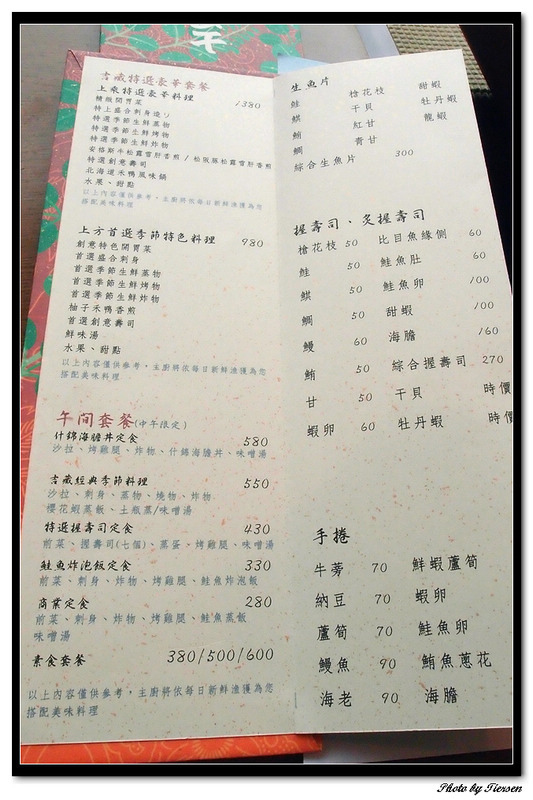 吉藏特選豪華套餐
上乘特選豪華料理 1380
精緻開胃菜
特上盛合刺身造り
特選季節生鮮蒸物
特選季節生鮮烤物
特選季節生鮮炸物
安格斯牛松露雪肝香煎 / 松阪豚松露雪肝香煎
特選創意壽司
北海道禾鴨風味鍋
水果、甜點
以上內容僅供參考，主廚將依每日新鮮漁獲為您
搭配美味料理
上方首選季節特色料理 980
創意特色開胃菜
首選盛合刺身
首選季節生鮮蒸物
首選季節生鮮烤物
首選季節生鮮炸物
柚子禾鴨香煎
首選創意壽司
鮮味湯
水果、甜點
以上內容僅供參考，主廚將依每日新鮮漁獲為您
搭配美味料理
午間套餐(中午限定)
什錦海膽丼定食 580
沙拉、烤雞腿、炸物、什錦海膽丼、味噌湯
吉藏經典季節料理 550
沙拉、刺身、蒸物、燒物、炸物
櫻花蝦蒸飯、土瓶蒸/味噌湯
特選握壽司定食 430
前菜、握壽司(七個)、蒸蛋、烤雞腿、味噌湯
鮭魚炸泡飯定食 330
前菜、刺身、炸物、烤雞腿、鮭魚炸泡飯
商業定食 280
前菜、刺身、炸物、烤雞腿、鮭魚蒸飯
味噌湯
素食套餐 380/500/600
以上內容僅供參考，主廚將依每日新鮮漁獲為您
搭配美味料理
生魚片
鮭 槍花枝 甜蝦
鯕 干貝 牡丹蝦
鮪 紅甘 龍蝦
鯛 青甘
綜合生魚片 300
握壽司、炙握壽司
槍花枝 50 比目魚緣側 60
鮭 50 鮭魚肚 60
鯕 50 鮭魚卵 100
鯛 50 甜蝦 100
鰻 60 海膽 160
鮪 50 綜合握壽司 270
甘 50 干貝 時價
蝦卵 60 牡丹蝦 時價
手捲
牛蒡 70 鮮蝦蘆筍
納豆 70 蝦卵
蘆筍 70 鮭魚卵
鰻魚 90 鮪魚蔥花
海老 90 海膽
Photo by Tiersen